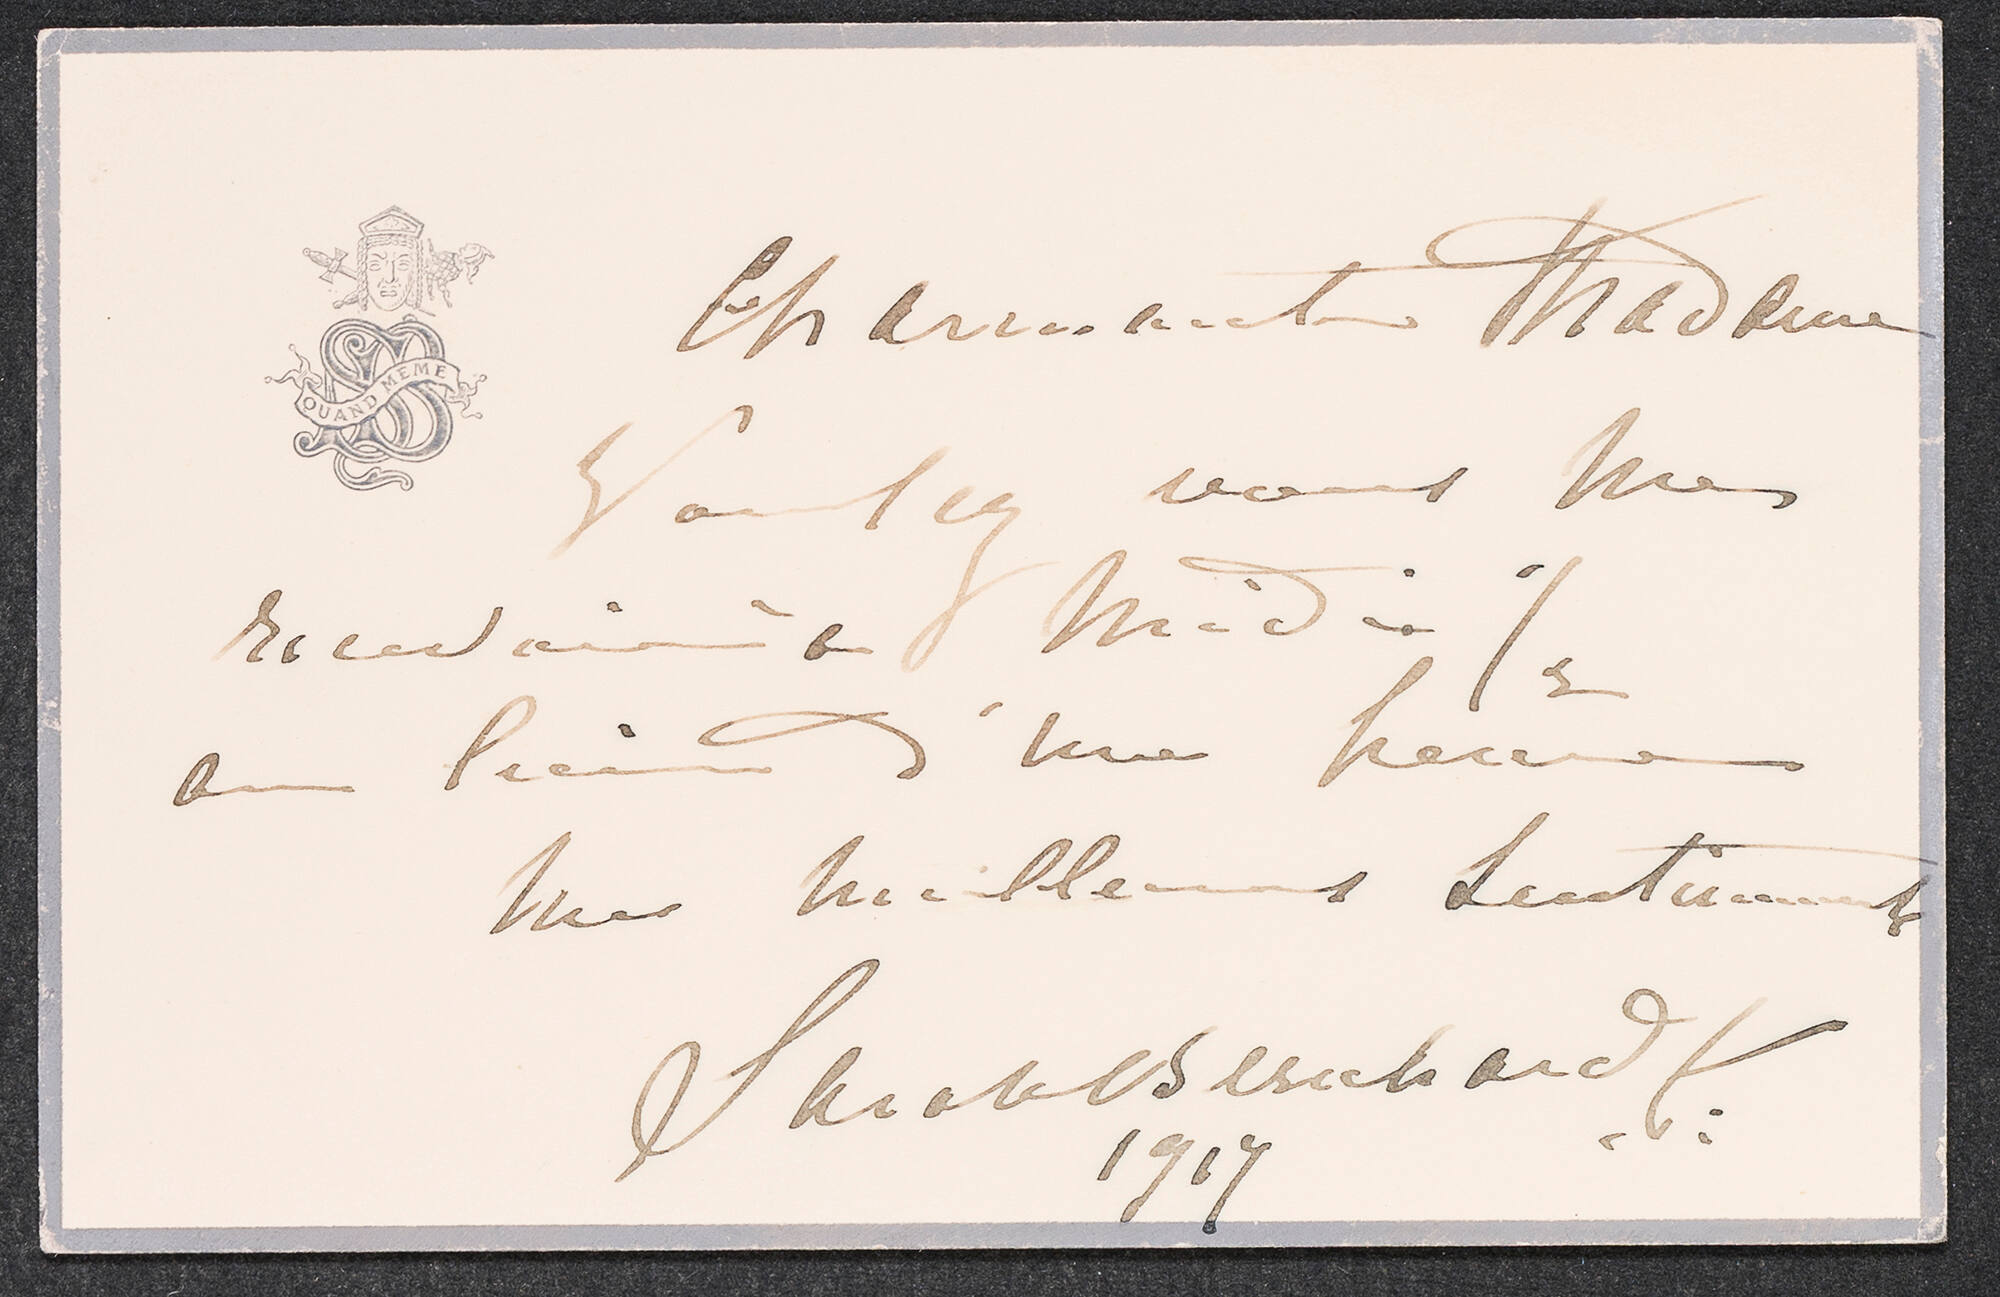 QUAND MEME
Charmante Madame
Voulez vous me
recevoir à Midi 1/2
au lieu d'une heure
mes meilleurs sentiments
Sarah Bernhardt
1917